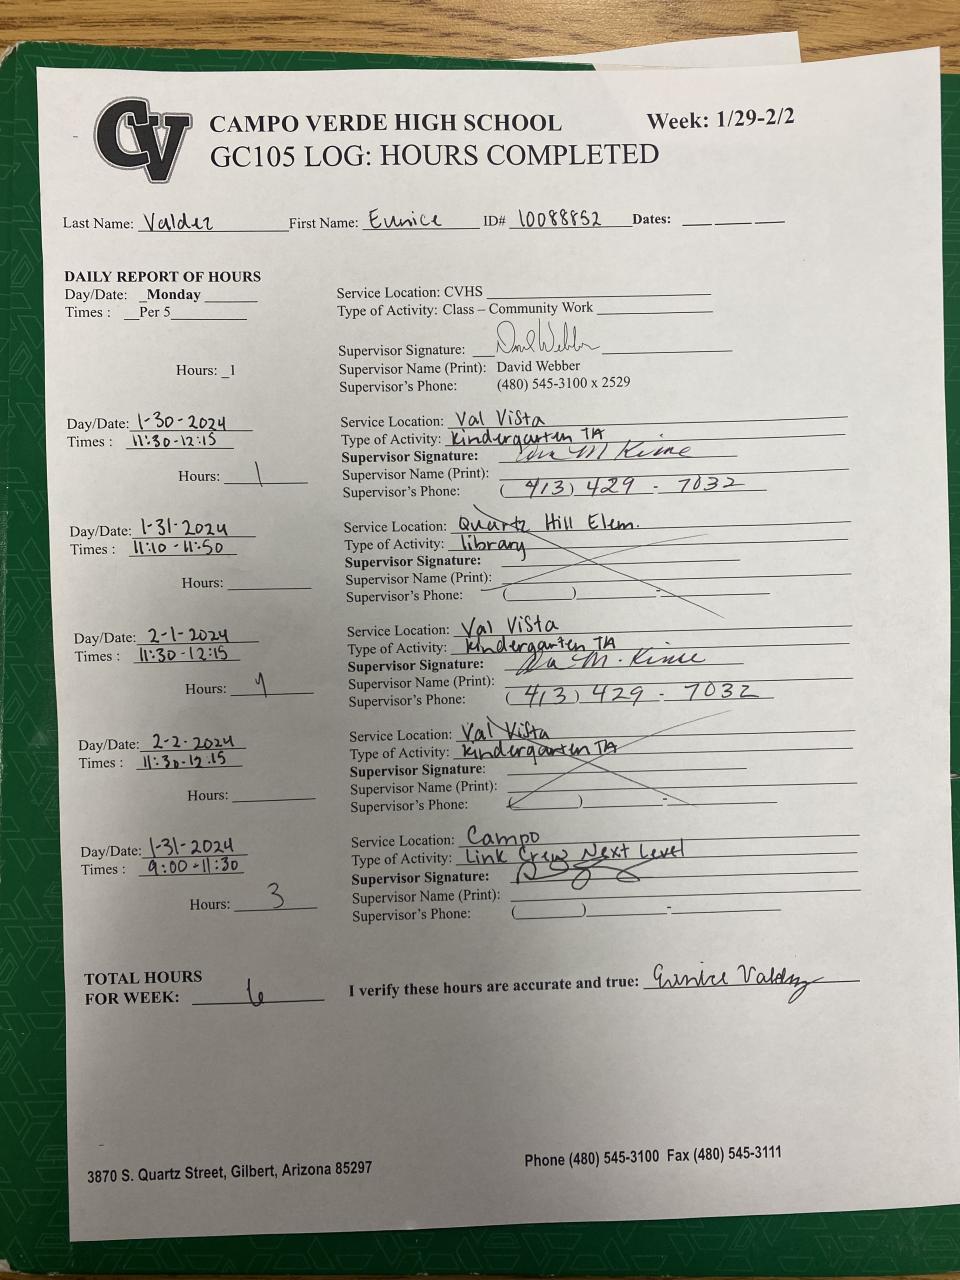 CV
CAMPO VERDE HIGH SCHOOL Week: 1/29-2/2
GC105 LOG: HOURS COMPLETED
Last Name: Valdez First Name: Eunice ID# 10088852 Dates:
DAILY REPORT OF HOURS
Day/Date: Monday Service Location: CVHS
Times : Per 5 Type of Activity: Class – Community Work
Supervisor Signature: David Webber
Hours: 1 Supervisor Name (Print): David Webber
Supervisor's Phone: (480) 545-3100 x 2529
Day/Date: 1-30-2024 Service Location: Val Vista
Times : 11:30-12:15 Type of Activity: Kindergarten TA
Supervisor Signature: M Kime
Hours: 1 Supervisor Name (Print):
Supervisor's Phone: (413) 429 - 7032
Day/Date: 1-31-2024 Service Location: Quartz Hill Elem.
Times : 11:10-11:50 Type of Activity: library
Supervisor Signature:
Hours: Supervisor Name (Print):
Supervisor's Phone: ( ) -
Day/Date: 2-1-2024 Service Location: Val Vista
Times : 11:30-12:15 Type of Activity: Kindergarten TA
Supervisor Signature: M. Kime
Hours: 1 Supervisor Name (Print):
Supervisor's Phone: (413) 429 - 7032
Day/Date: 2-2-2024 Service Location: Val Vista
Times : 11:30-12:15 Type of Activity: Kindergarten TA
Supervisor Signature:
Hours: Supervisor Name (Print):
Supervisor's Phone: ( ) -
Day/Date: 1-31-2024 Service Location: Campo
Times : 9:00-11:30 Type of Activity: Link Crew Next Level
Supervisor Signature:
Hours: 3 Supervisor Name (Print):
Supervisor's Phone: ( ) -
TOTAL HOURS
FOR WEEK: 6 I verify these hours are accurate and true: Eunice Valdez
3870 S. Quartz Street, Gilbert, Arizona 85297 Phone (480) 545-3100 Fax (480) 545-3111